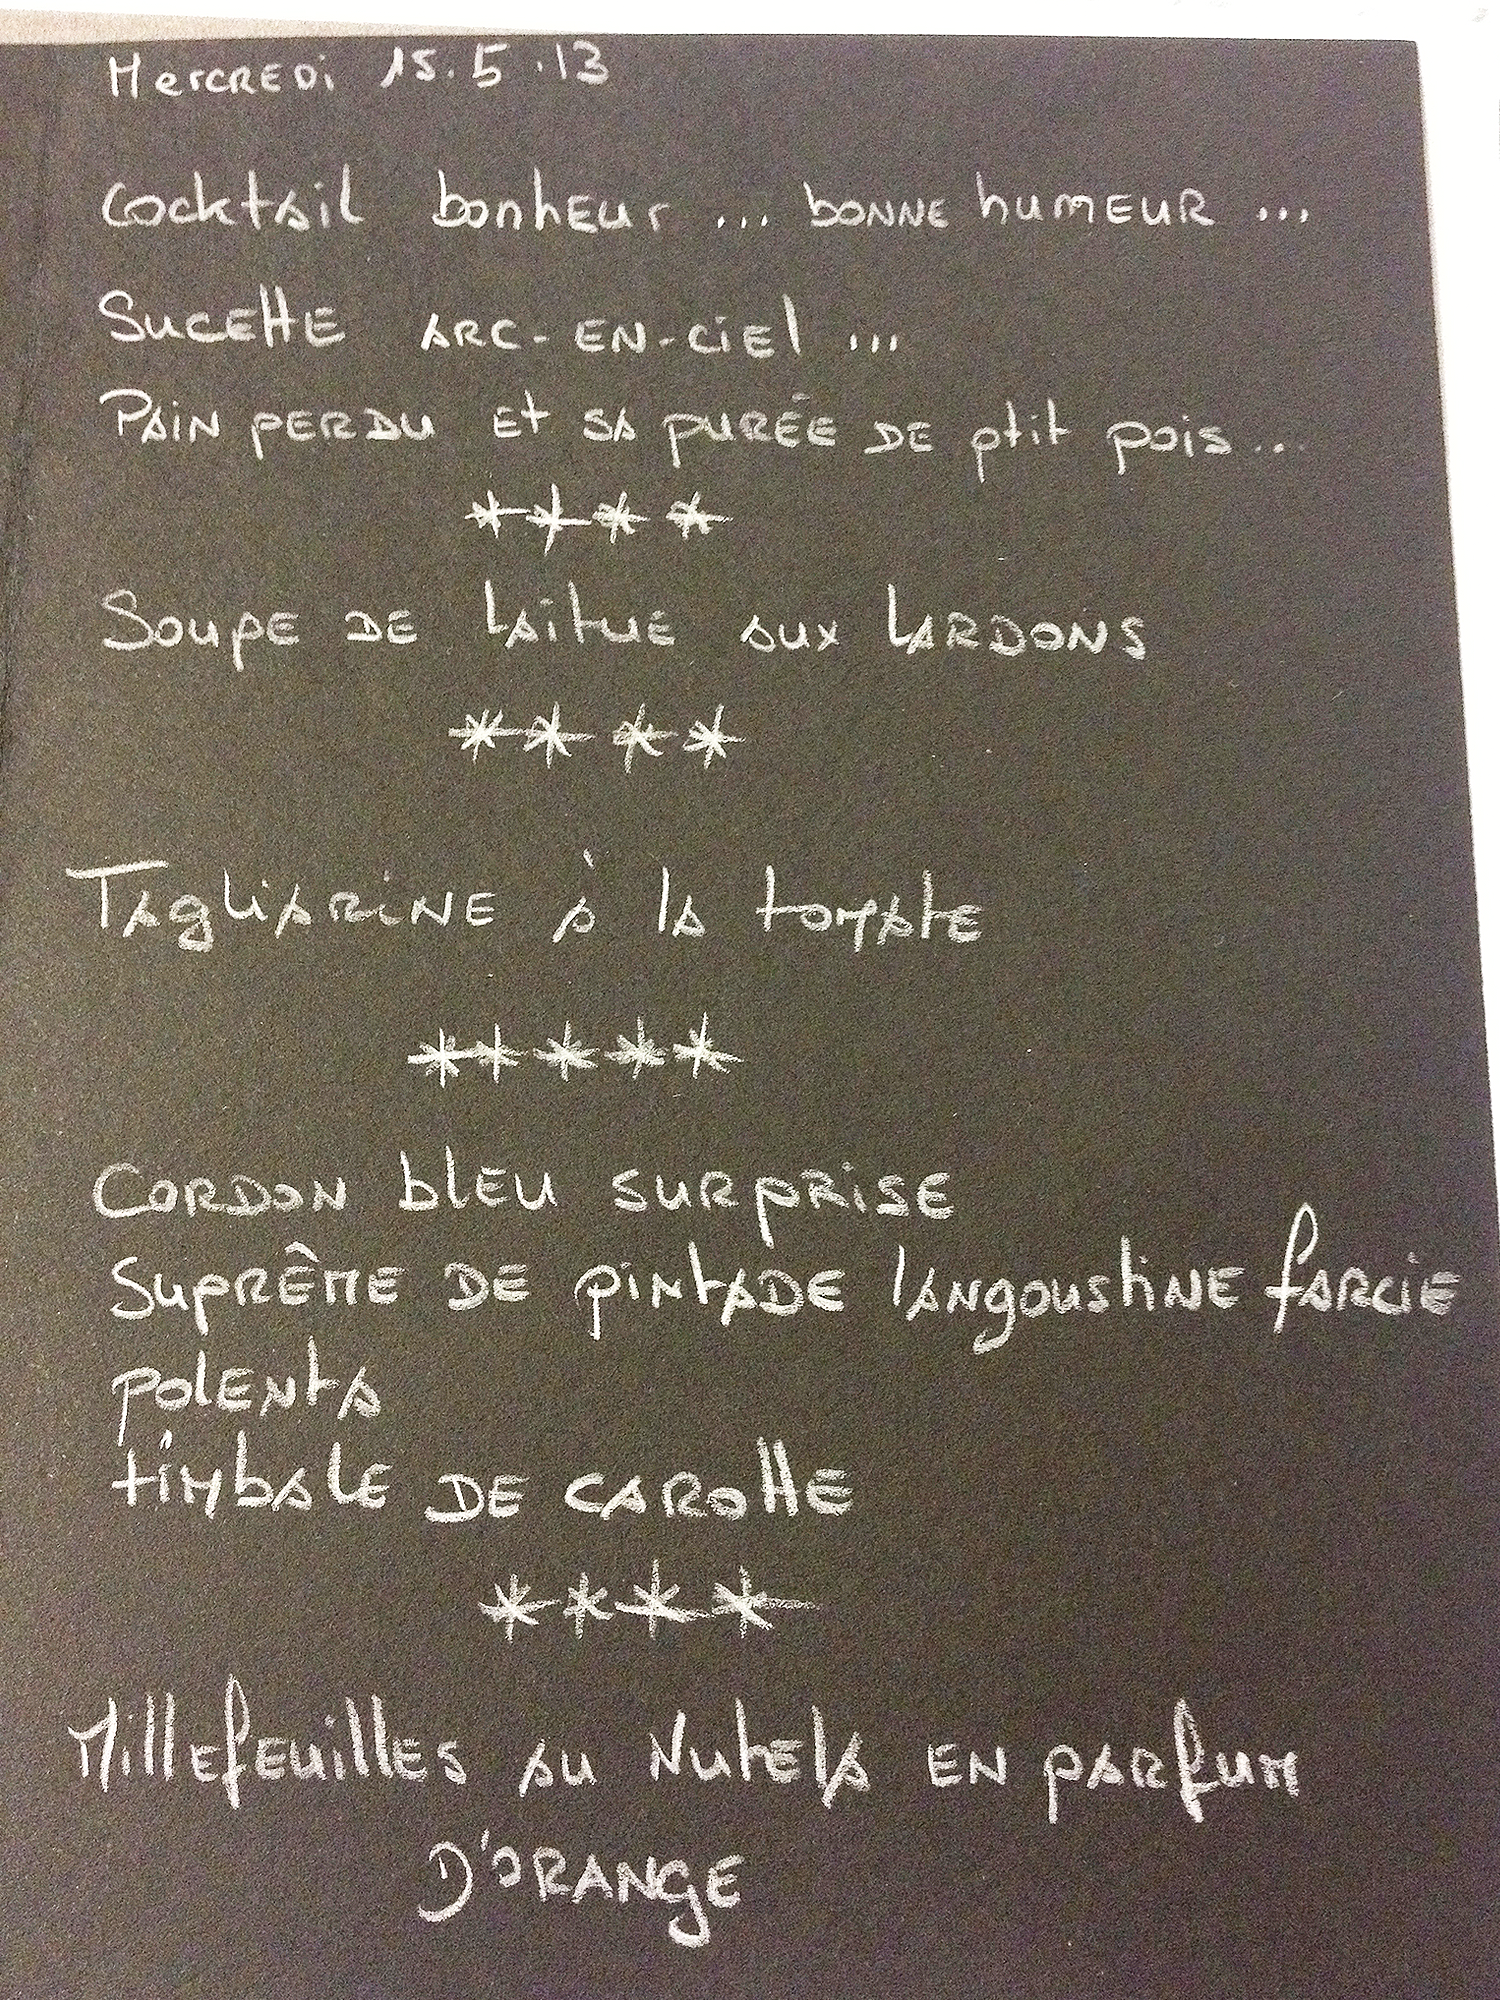 Mercredi 15.5.13
Cocktail bonheur ... bonne humeur ...
Sucette arc-en-ciel ...
Pain perdu et sa purée de ptit pois ...
****
Soupe de laitue aux lardons
****
Tagliarine à la tomate
*****
Cordon bleu surprise
Suprême de pintade langoustine farcie
polenta
timbale de carotte
****
Millefeuilles au Nutela en parfum
d'orange